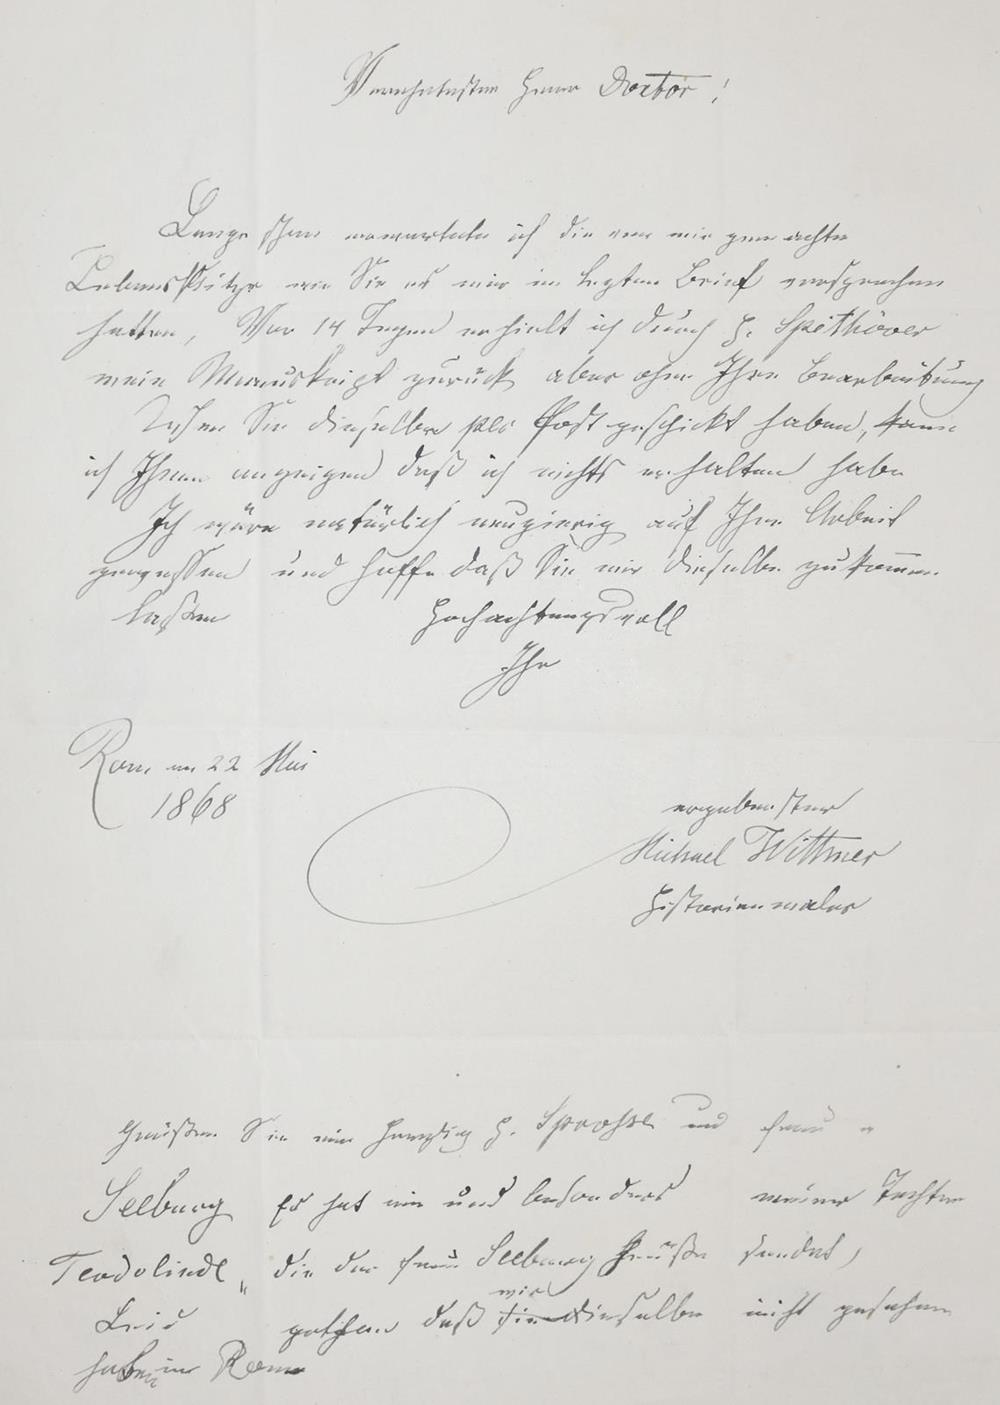 Verehrtester Herr Doctor!
Lange schon erwartete ich die von mir gemachte
Lebensskitze wie Sie es mir im letzten Brief versprochen
hatten, Vor 14 Tagen erhielt ich durch H. Spithöver
mein Manuskript zurück aber ohne Ihre Bearbeitung
Sie dieselbe per Post geschickt haben, kann
ich Ihnen anzeigen daß ich nichts erhalten habe
Ich wäre natürlich neugierig auf Ihre Arbeit
gewessen und hoffe daß Sie mir dieselbe zukommen
laßen Hochachtungsvoll
Ihr
Rom am 22 Mai
1868
ergebenster
Michael Wittmer
Historienmaler
Grüßen Sie mir herzlich H. Sprosse und Frau v
Seeburg Es hat mir und besonders meiner Tochter
Teodolinde, die der Frau Seeburg Grüße sendet,
Leid gethan daß wir dieselbe nicht gesehen
haben in Rom